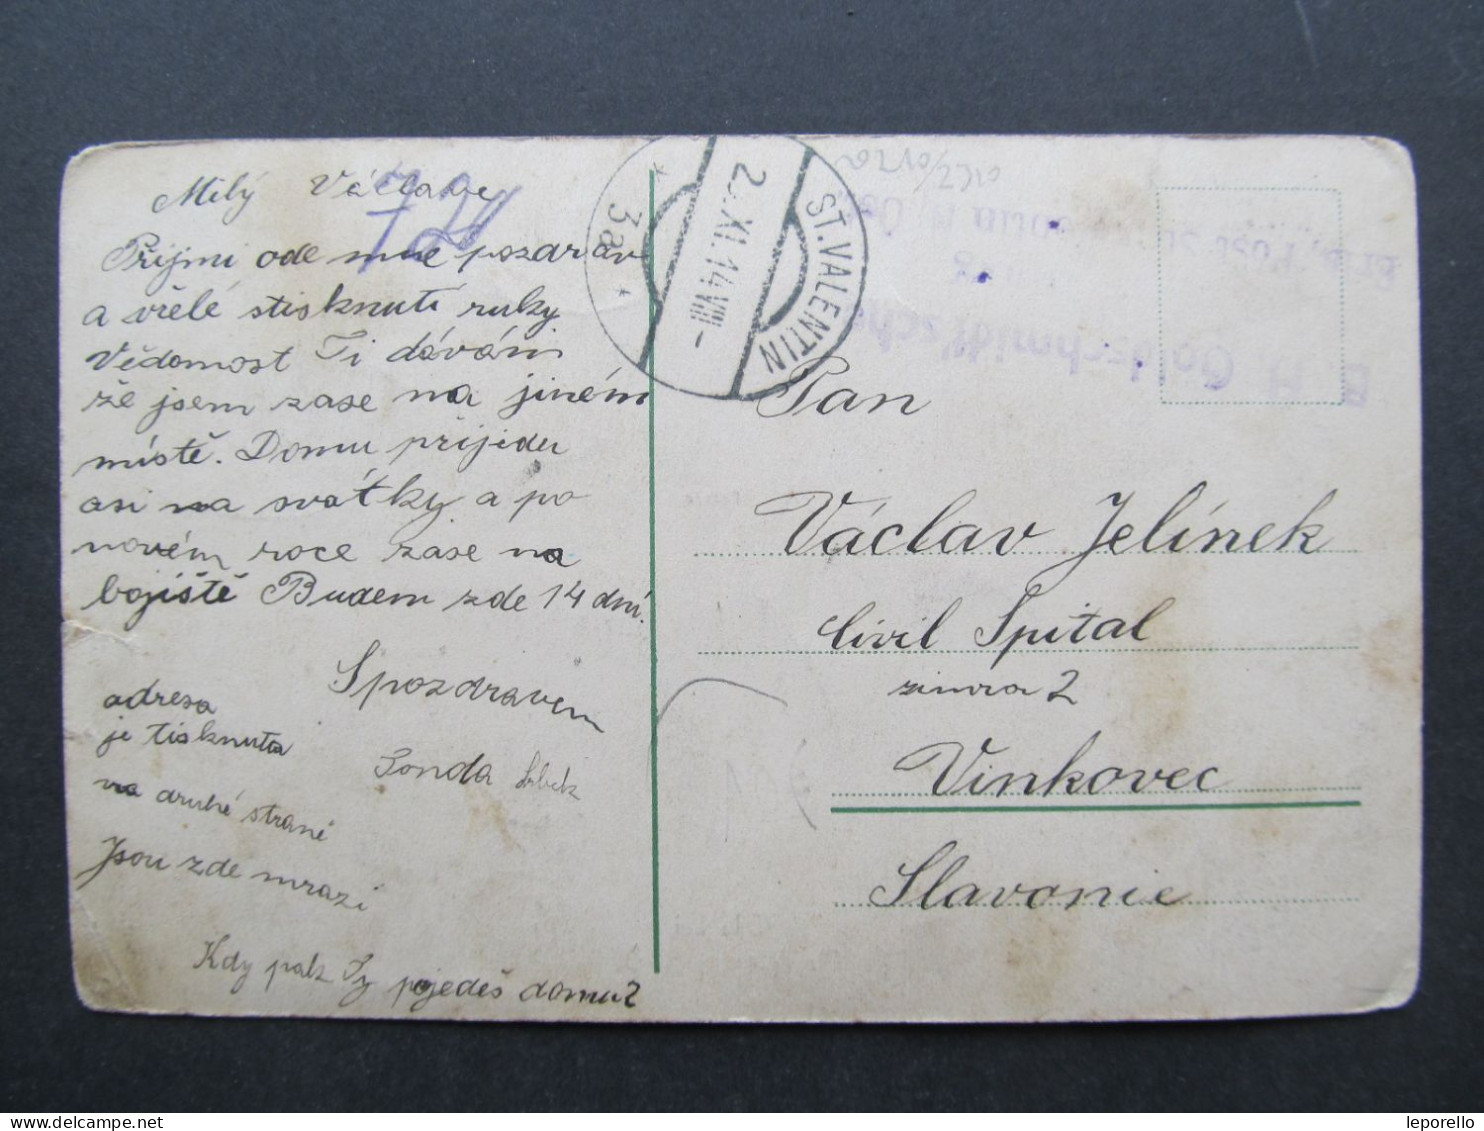 Milý Václave
Přijmi ode mne pozdrav
a vřelé stisknutí ruky
Vědomost Ti dávám
že jsem zase na jiném
místě. Domu přijedu
asi na svátky a po
novém roce zase na
bojiště Budem zde 14 dní.
S pozdravem
Tonda
adresa
je tisknuta
na druhé straně
Jsou zde mrazi
Kdy pak Ty pojedeš domu?
ST. VALENTIN
2 . XI. 14 VIII -
* 3a *
Pan
Václav Jelínek
Civil Spital
zimra 2
Vinkovec
Slavonie
leporello